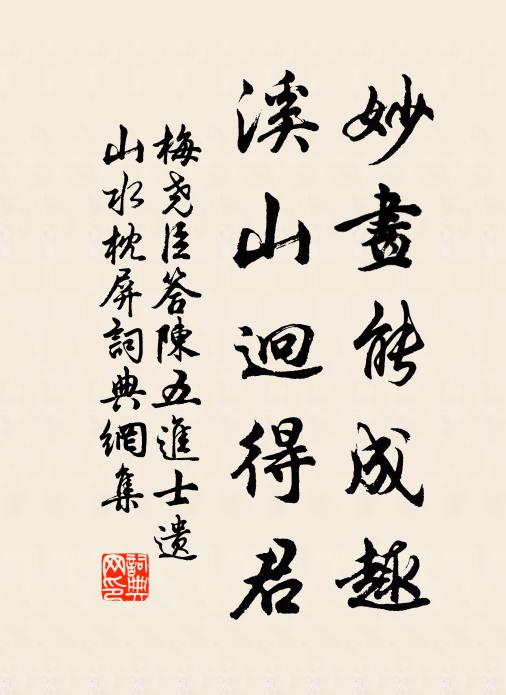 妙畫能成趣
溪山迥得君
梅堯臣答陳五進士遺
山水枕屏詞典網集
詞典
网印